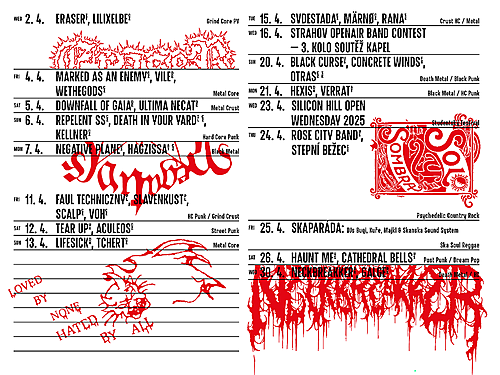 WED 2. 4. ERASER, LILIXELBE Grind Core PV
FRI 4. 4. MARKED AS AN ENEMY, VILE,
WETHEGODS Metal Core
SAT 5. 4. DOWNFALL OF GAIA, ULTIMA NECAT Metal Crust
SUN 6. 4. REPELENT SS, DEATH IN YOUR YARD,
KELLNER Hard Core Punk
MON 7. 4. NEGATIVE PLANE, HAGZISSA Black Metal
FRI 11. 4. FAUL TECHNIZCNY, SLAVENKUST,
SCALP, VOH HC Punk / Grind Crust
SAT 12. 4. TEAR UP, ACULEOS Street Punk
SUN 13. 4. LIFESICK, TCHERT Metal Core
LOVED
BY
NONE
HATED BY ALL
TUE 15. 4. SVDESTADA, MÄRNO, RANA Crust HC / Metal
WED 16. 4. STRAHOV OPENAIR BAND CONTEST
— 3. KOLO SOUTĚŽ KAPEL
SUN 20. 4. BLACK CURSE, CONCRETE WINDS,
OTRAS Death Metal / Black Punk
MON 21. 4. HEXIS, VERRAT Black Metal / HC Punk
WED 23. 4. SILICON HILL OPEN
WEDNESDAY 2025 Studentský festival
THU 24. 4. ROSE CITY BAND,
STEPNÍ BEŽEC
SOL
SOMBRA
Psychedelic Country Rock
FRI 25. 4. SKAPARÁDA: DDs Bugi, Kufe, Majkl & Skanska Sound System
Ska Soul Reggae
SAT 26. 4. HAUNT ME, CATHEDRAL BELLS Post Punk / Dream Pop
WED 30. 4. NECKBREAKKER, GALGE Death Metal / HC
NECKBREAKKER